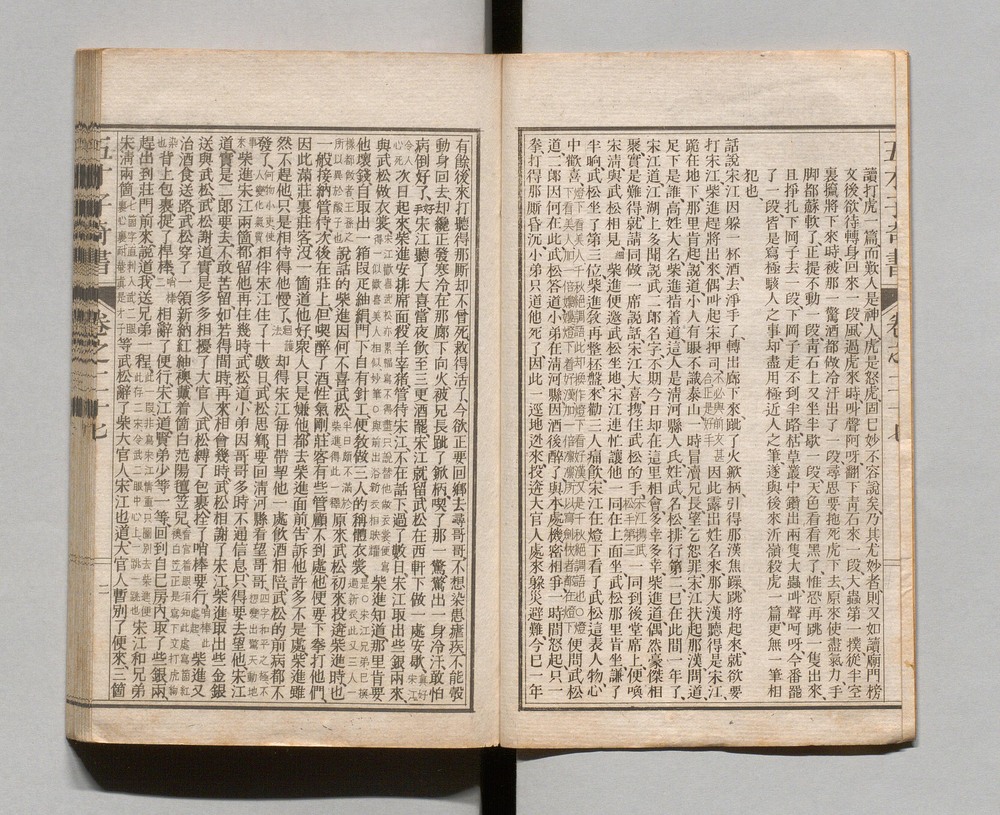 讀打虎一篇而歎人是神人虎是怒虎固已妙不容說矣乃其尤妙者則又如讀廟門榜
文後欲待轉身回來一段風過虎來時叫聲阿呀翻下青石來一段大蟲第一撲從半空
裏攛將下來時被那一驚酒都做冷汗出了一段尋思要拖死虎下去原來使盡氣力手
脚都蘇軟了正提不動一段青石上又坐半歇一段天色看看黑了惟恐再跳一隻出來
且掙扎下岡子去一段下岡子走不到半路枯草叢中鑽出兩隻大蟲叫聲阿呀今番罷
了一段皆是寫極駭人之事却盡用極近人之筆遂與後來沂嶺殺虎一篇更無一筆相
犯也
話說宋江因躲一杯酒去淨手了轉出廊下來跐了火鍁柄引得那漢焦躁跳將起來就欲要
打宋江柴進趕將出來偶叫起宋押司不必與前文甚合正是好手因此露出姓名來那大漢聽得是宋江
跪在地下那里肯起說道小人有眼不識泰山一時冒瀆兄長望乞恕罪宋江扶起那漢問道
足下是誰高姓大名柴進指着道這人是清河縣人氏姓武名松排行第二已在此間一年了
宋江道江湖上多聞說武二郎名字不期今日却在這里相會多幸多幸柴進道偶然豪傑相
聚實是難得就請同做一席說話宋江大喜携住武松的手宋江携武松手第一一同到後堂席上便喚
宋清與武松相見柴進便邀武松坐地宋江連忙讓他一同在上面坐武松那里肯坐謙了
半晌武松坐了第三位柴進敎再整杯盤來勸三人痛飲宋江在燈下看了武松這表人物心
中歡喜便問武松
道二郎因何在此武松答道小弟在清河縣因酒後醉了與本處機密相爭一時間怒起只一
拳打得那厮昏沉小弟只道他死了因此一逕地迯來投迯大官人處來躲災避難今已一年
有餘後來打聽得那厮却不曾死救得活了今欲正要回鄉去尋哥哥不想染患瘧疾不能彀
動身回去却纔正發寒冷在那廊下向火被兄長跐了鍁柄喫了那一驚驚出一身冷汗敢怕
病倒好了宋江聽了大喜當夜飲至三更酒罷宋江就留武松在西軒下做一處安歇
次日起來柴進安排席面殺羊宰猪管待宋江不在話下過了數日宋江取出些銀兩來
與武松做衣裳柴進知道那里肯要
他壞錢自取出一箱段疋紬絹門下自有針工便敎做三人的稱體衣裳
說話的柴進因何不喜武松原來武松初來投迯柴進時也
一般接納管待次後在莊上但喫醉了酒性氣剛莊客有些管顧不到處他便要下拳打他們
因此滿莊裏莊客沒一箇道他好衆人只是嫌他都去柴進面前告訴他許多不是處柴進雖
然不趕他只是相待得他慢了却得宋江每日帶挈他一處飲酒相陪武松的前病都不
發了相伴宋江住了十數日武松思鄉要回清河縣看望哥哥
柴進宋江兩箇都留他再住幾時武松道小弟因哥哥多時不通信息只得要去望他宋江
道實是二郎要去不敢苦留如若得閒時再來相會幾時武松相謝了宋江柴進取出些金銀
送與武松武松謝道實是多多相擾了大官人武松縛了包裹拴了哨棒要行柴進又
治酒食送路武松穿了一領新納紅紬襖戴着箇白范陽氊笠兒
背上包裹提了桿棒相辭了便行宋江道賢弟少等一等回到自已房内取了些銀兩
趕出到莊門前來說道我送兄弟一程宋江和兄弟
宋清兩箇等武松辭了柴大官人宋江也道大官人暫別了便來三箇
五才子奇書
卷之二十七
二